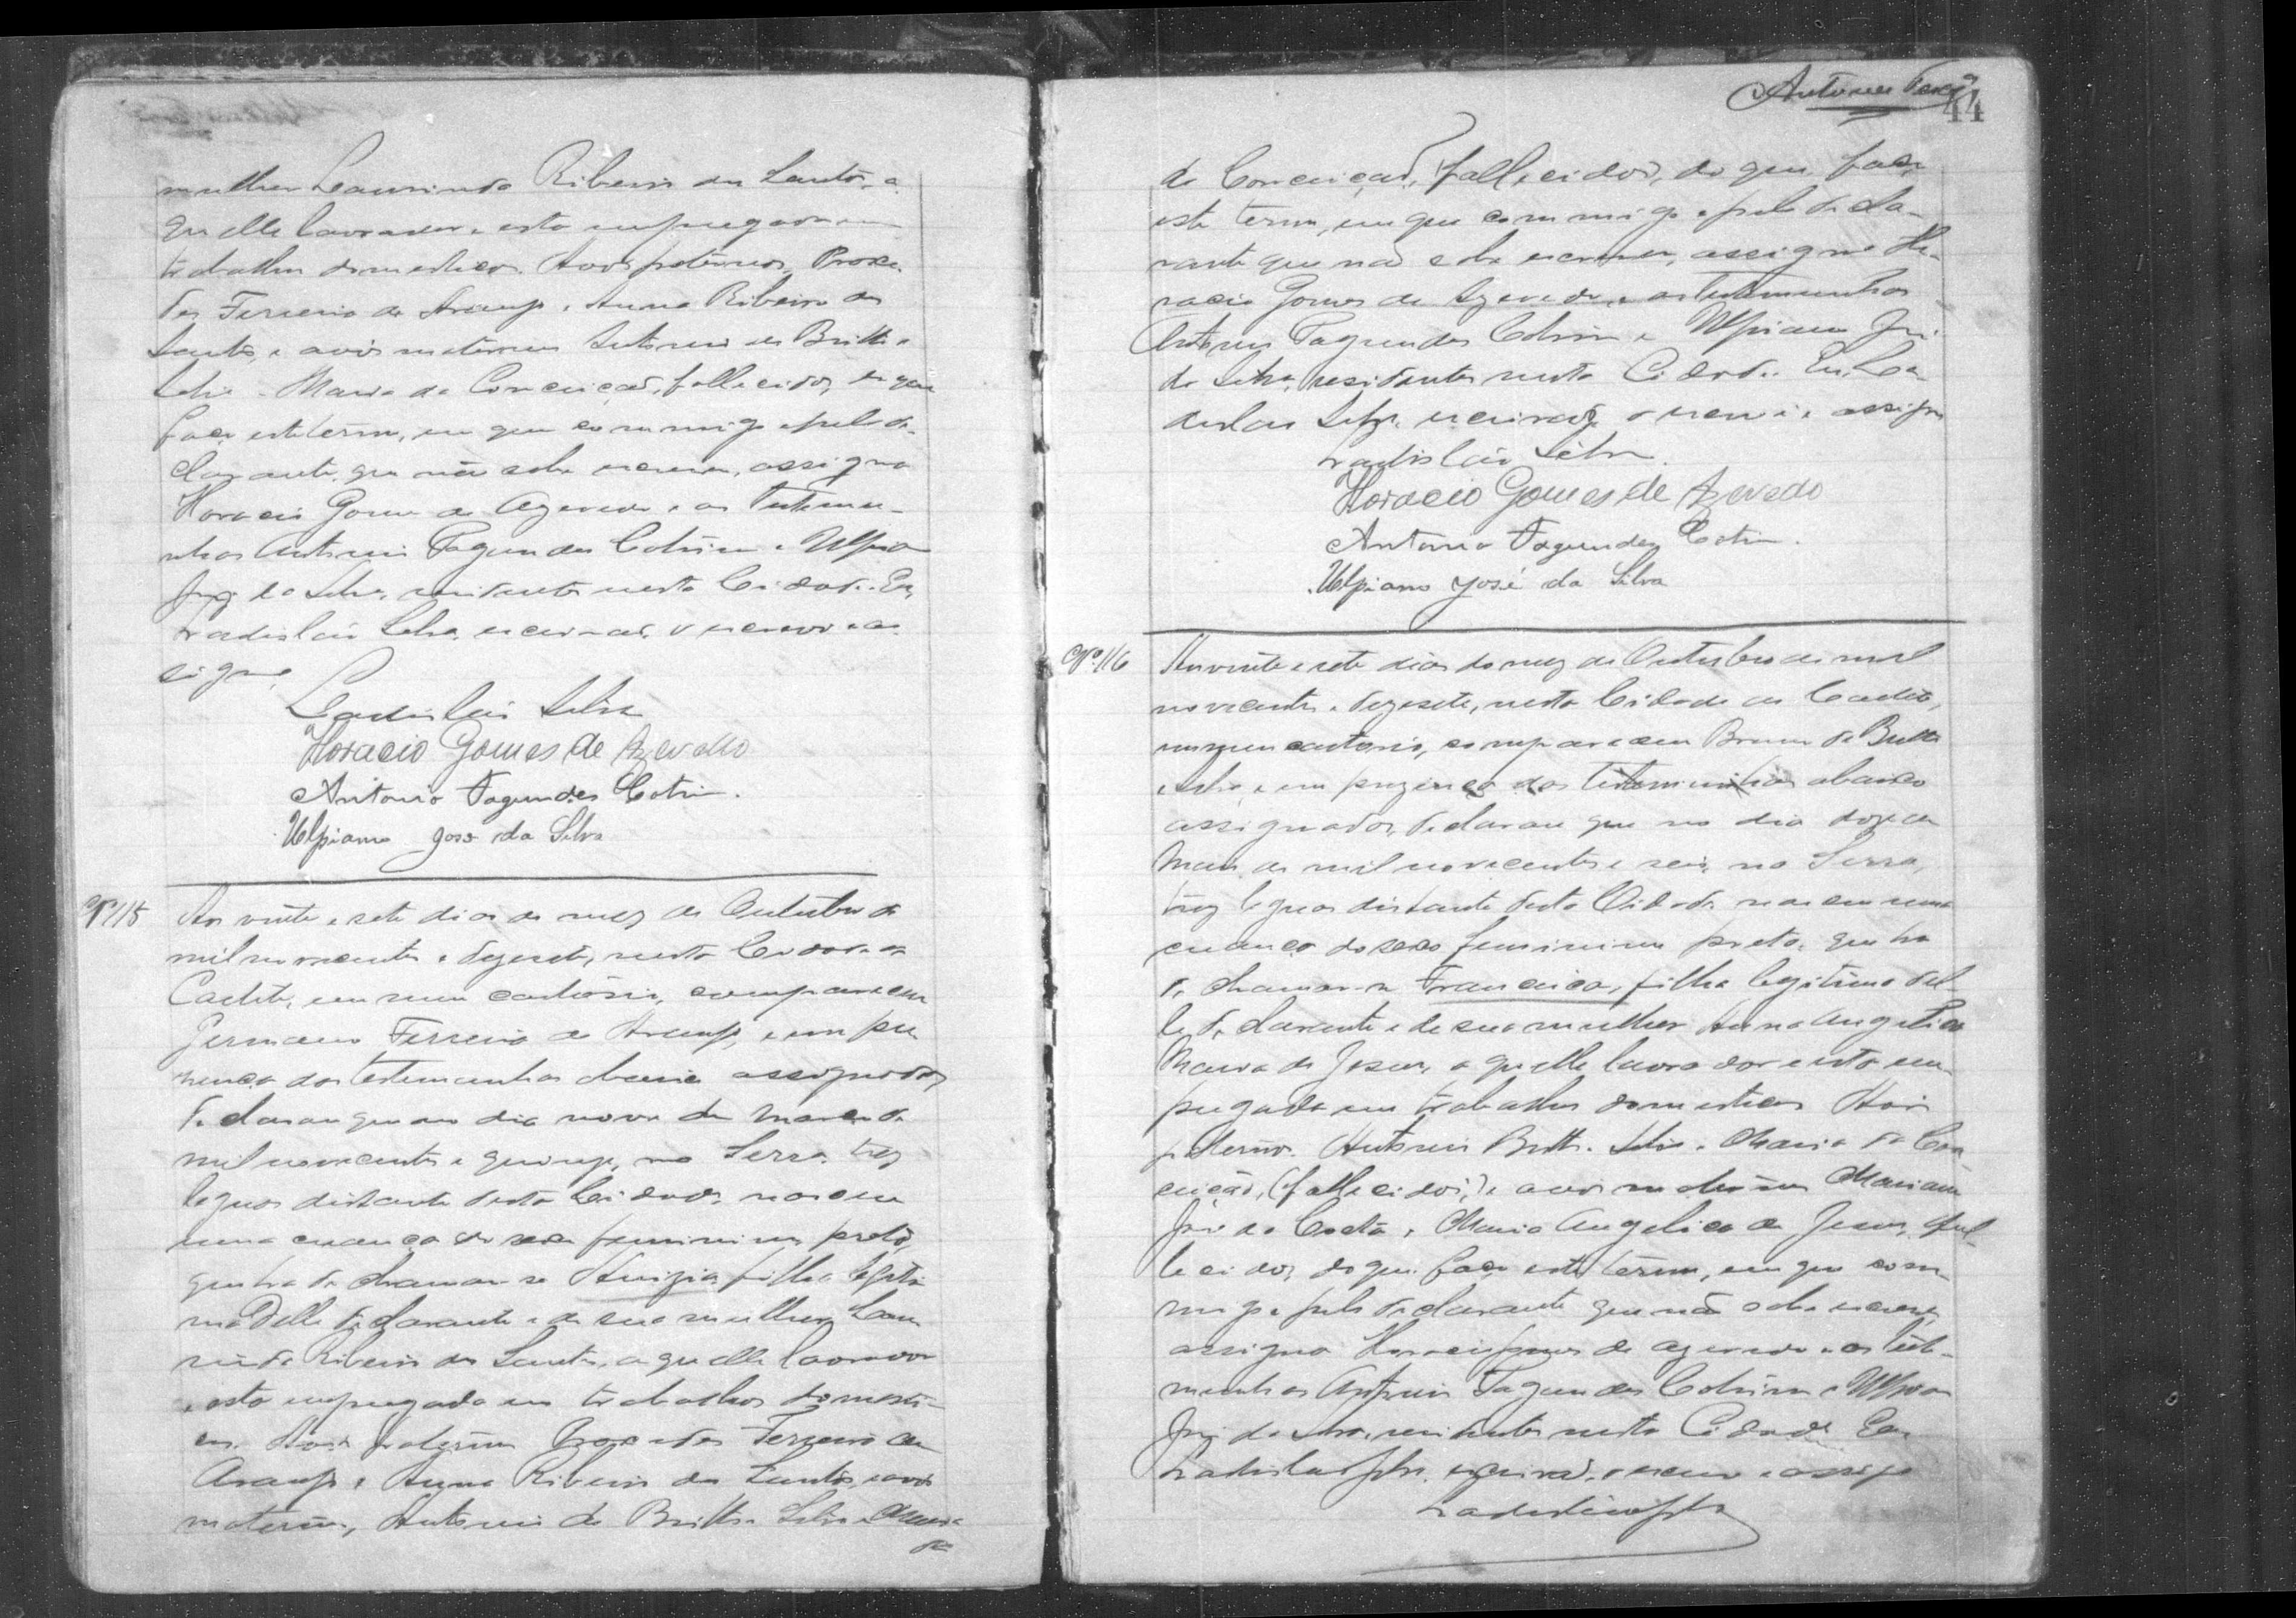 mulher Laurinda Ribeiro dos Santos, a
quelle lavrador e esta empregada em
trabalhos domesticos. Avós paternos, Proce
des Ferreira de Araujo e Anna Ribeiro dos
Santos, e avós maternos Antonio de Britto e
Silva e Maria da Conceição, fallecidos, do que
faço este termo, em que commigo e pelo de-
clarante, que não sabe escrever, assigna
Horacio Gomes de Azevedo e as testemu-
nhas Antonio Fagundes Cotrim e Ulpiano
José da Silva, residentes nesta Cidade. Eu,
Ladisláo Silva, escrivão, o escrevi e as-
signo.
Ladisláo Silva
Horacio Gomes de Azevedo
Antonio Fagundes Cotrim.
Ulpiano José da Silva
Nº 115
Aos vinte e sete dias do mez de Outubro de
mil novecentos e dezesete, nesta Cidade de
Caeteté, em meu cartorio, compareceu
Germano Ferreira de Araujo, e em pre
zença das testemunhas abaixo assignadas,
declarou que no dia nove de Março de
mil novecentos e quinze, na Serra, trez
leguas distante desta Cidade, nasceu
uma creança do sexo feminino, preta,
que ha de chamar-se Anizia, filha legiti
ma delle declarante e de sua mulher Lau
rinda Ribeiro dos Santos, aquelle lavrador
e esta empregada em trabalhos domesti-
cos. Avós paternos Procedes Ferreira de
Araujo e Anna Ribeiro dos Santos, e avós
maternos, Antonio de Britto e Silva e Maria
da
Antonio
44
da Conceição, (fallecidos), do que faço
este termo, em que commigo e pelo decla-
rante que não sabe escrever, assigna Ho-
racio Gomes de Azevedo, e as testemunhas
Antonio Fagundes Cotrim e Ulpiano José
da Silva, residentes nesta Cidade. Eu, La
disláo Silva, escrivão, o escrevi e assigno
Ladisláo Silva.
Horacio Gomes de Azevedo
Antonio Fagundes Cotrim.
Ulpiano José da Silva
Nº 116
Aos vinte e sete dias do mez de Outubro de mil
novecentos e dezesete, nesta Cidade de Caeteté,
em meu cartorio, compareceu Bruno de Britto
e Silva, e em prezença das testemunhas abaixo
assignadas, declarou que no dia doze de
Maio de mil novecentos e seis, na Serra,
trez leguas distante desta Cidade nasceu uma
creança do sexo feminino preta, que ha
de chamar-se Francisca, filha legitima del
le declarante e de sua mulher Anna Angelica
Maria de Jesus, aquelle lavrador e esta em
pregada em trabalhos domesticos Avós
paternos. Antonio Britto e Silva e Maria da Con-
ceição, (fallecidos,) e avós maternos Mariano
José da Costa e Maria Angelica de Jesus, fal-
lecidos, do que faço este termo, em que com-
migo e pelo declarante que não sabe escrever,
assigna Horacio Gomes de Azevedo e as teste-
munhas Antonio Fagundes Cotrim e Ulpiano
José da Silva, residentes nesta Cidade Eu,
Ladisláo Silva, escrivão, o escrevi e assigno
Ladisláo Silva